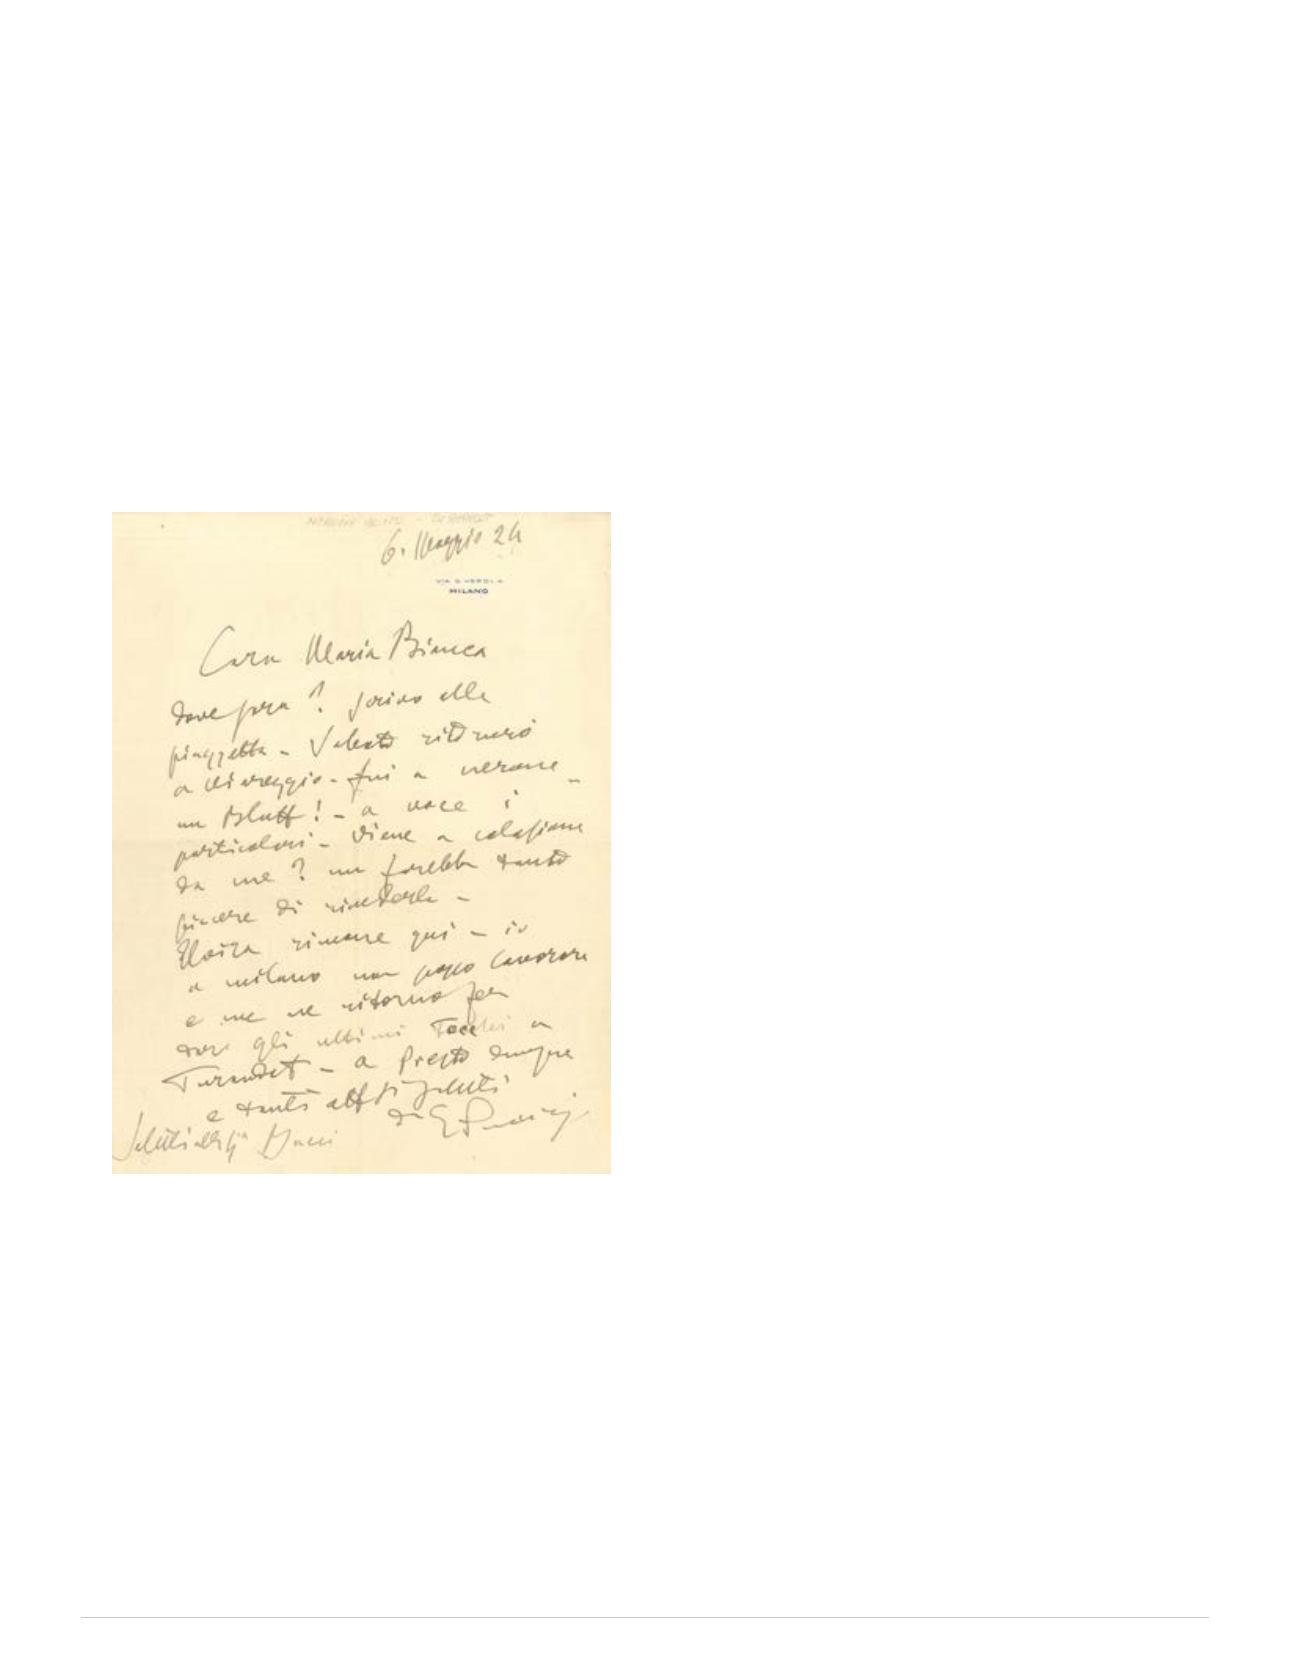 6. Maggio 24
VIA S. VEROLA
MILANO
Cara Maria Bianca
dove sara? scrivo alla
piazzetta - Sabato ritornerò
a Viareggio - fui a nerone -
un bluff! - a voce i
particolari - viene a colazione
da me? mi farebbe tanto
piacere di rivederla -
Elvira rimane qui - io
a milano non posso lavorare
e me ne ritorno per
dare gli ultimi Tocchi a
Turandot - a presto dunque
e tanti aff si saluti
da GPuccini
Saluti alla